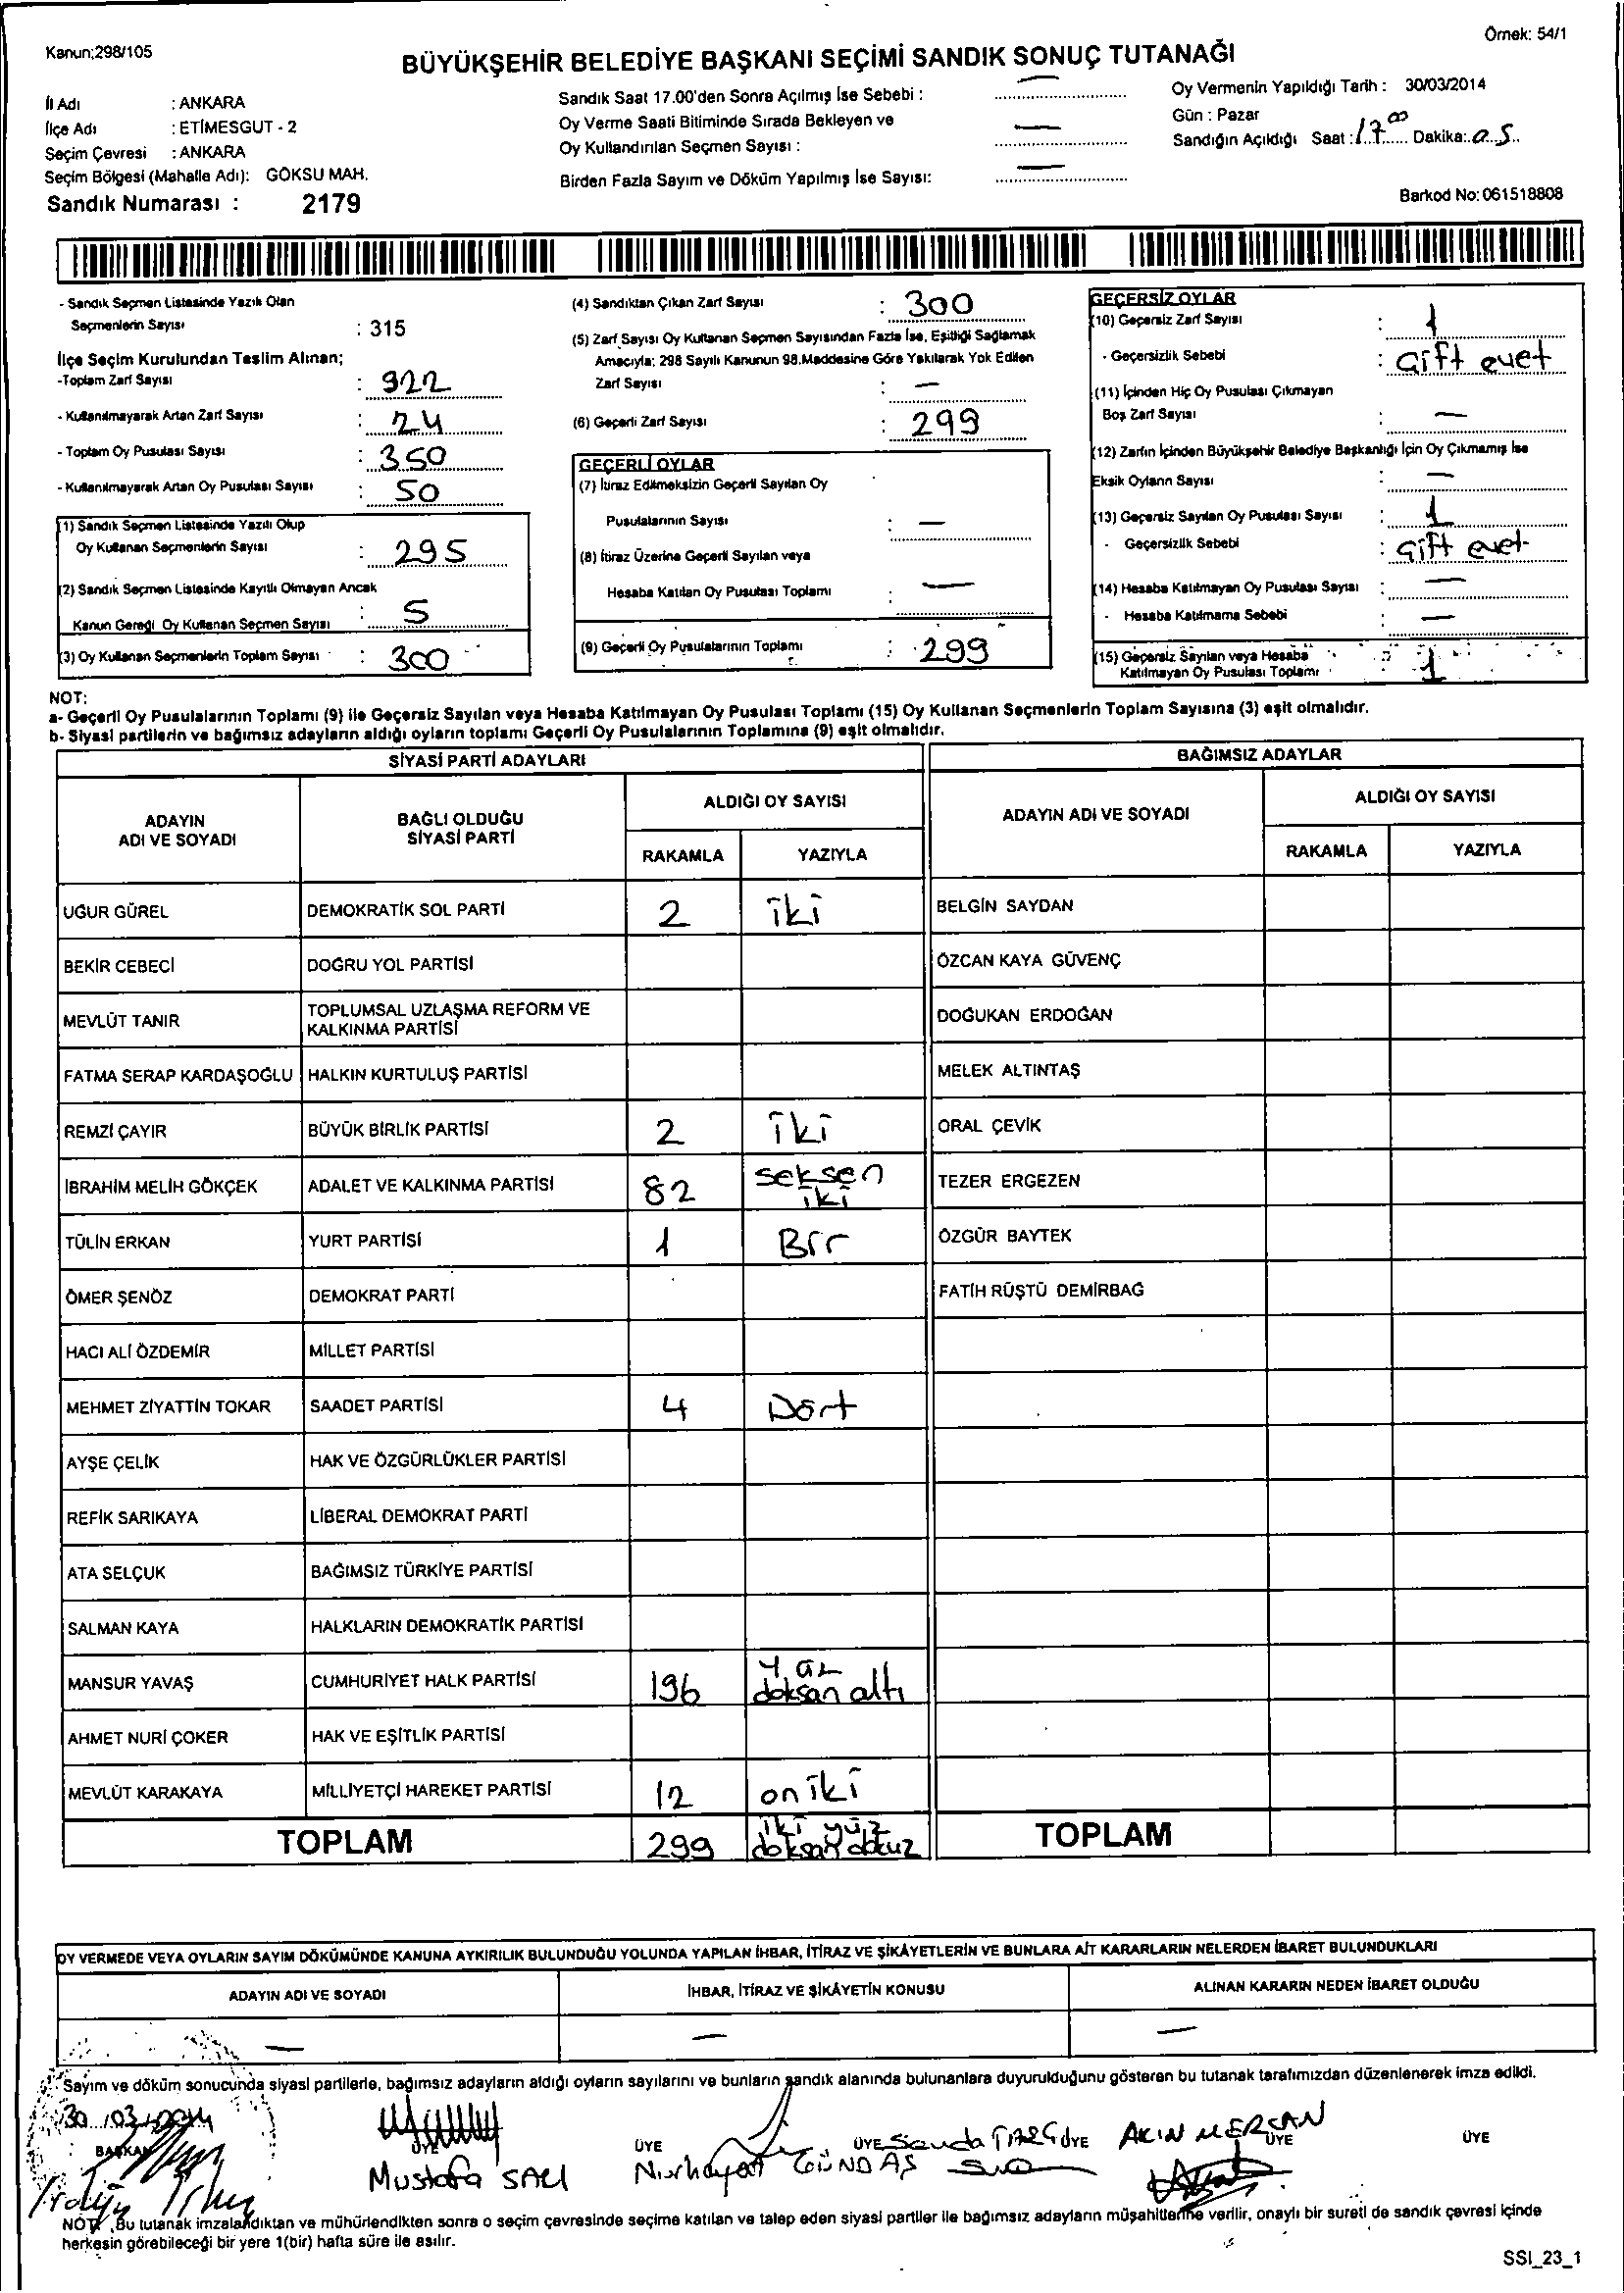 Kanun;298/105
Örnek: 54/1
BÜYÜKŞEHİR BELEDİYE BAŞKANI SEÇİMİ SANDIK SONUÇ TUTANAĞI
İl Adı : ANKARA
İlçe Adı : ETİMESGUT - 2
Seçim Çevresi : ANKARA
Seçim Bölgesi (Mahalle Adı): GÖKSU MAH.
Sandık Numarası : 2179
Sandık Saat 17.00'den Sonra Açılmış İse Sebebi : —
Oy Verme Saati Bitiminde Sırada Bekleyen ve
Oy Kullandırılan Seçmen Sayısı : —
Birden Fazla Sayım ve Döküm Yapılmış İse Sayısı: —
Oy Vermenin Yapıldığı Tarih : 30/03/2014
Gün : Pazar
Sandığın Açıldığı Saat : 17 00 Dakika:
Barkod No:061518808
- Sandık Seçmen Listesinde Yazılı Olan
Seçmenlerin Sayısı : 315
İlçe Seçim Kurulundan Teslim Alınan;
-Toplam Zarf Sayısı : 322
- Kullanılmayarak Artan Zarf Sayısı : 24
- Toplam Oy Pusulası Sayısı : 350
- Kullanılmayarak Artan Oy Pusulası Sayısı : 50
(1) Sandık Seçmen Listesinde Yazılı Olup
Oy Kullanan Seçmenlerin Sayısı : 295
(2) Sandık Seçmen Listesinde Kayıtlı Olmayan Ancak
Kanun Gereği Oy Kullanan Seçmen Sayısı : 5
(3) Oy Kullanan Seçmenlerin Toplam Sayısı : 300
(4) Sandıktan Çıkan Zarf Sayısı : 300
(5) Zarf Sayısı Oy Kullanan Seçmen Sayısından Fazla İse, Eşitliği Sağlamak
Amacıyla; 298 Sayılı Kanunun 98.Maddesine Göre Yakılarak Yok Edilen
Zarf Sayısı : —
(6) Geçerli Zarf Sayısı : 299
GEÇERLİ OYLAR
(7) İtiraz Edilmeksizin Geçerli Sayılan Oy
Pusulalarının Sayısı : —
(8) İtiraz Üzerine Geçerli Sayılan veya
Hesaba Katılan Oy Pusulası Toplamı : —
(9) Geçerli Oy Pusulalarının Toplamı : 299
GEÇERSİZ OYLAR
(10) Geçersiz Zarf Sayısı : 1
- Geçersizlik Sebebi : Çift evet
(11) İçinden Hiç Oy Pusulası Çıkmayan
Boş Zarf Sayısı : —
(12) Zarfın İçinden Büyükşehir Belediye Başkanlığı İçin Oy Çıkmamış İse
Eksik Oyların Sayısı : —
(13) Geçersiz Sayılan Oy Pusulası Sayısı : 1
- Geçersizlik Sebebi : Çift evet
(14) Hesaba Katılmayan Oy Pusulası Sayısı : —
- Hesaba Katılmama Sebebi : —
(15) Geçersiz Sayılan veya Hesaba
Katılmayan Oy Pusulası Toplamı : 1
NOT:
a- Geçerli Oy Pusulalarının Toplamı (9) ile Geçersiz Sayılan veya Hesaba Katılmayan Oy Pusulası Toplamı (15) Oy Kullanan Seçmenlerin Toplam Sayısına (3) eşit olmalıdır.
b- Siyasi partilerin ve bağımsız adayların aldığı oyların toplamı Geçerli Oy Pusulalarının Toplamına (9) eşit olmalıdır.
SİYASİ PARTİ ADAYLARI
ADAYIN
ADI VE SOYADI
BAĞLI OLDUĞU
SİYASİ PARTİ
ALDIĞI OY SAYISI
RAKAMLA YAZIYLA
UĞUR GÜREL DEMOKRATİK SOL PARTİ 2 iki
BEKİR CEBECİ DOĞRU YOL PARTİSİ
MEVLÜT TANIR TOPLUMSAL UZLAŞMA REFORM VE
KALKINMA PARTİSİ
FATMA SERAP KARDAŞOĞLU HALKIN KURTULUŞ PARTİSİ
REMZİ ÇAYIR BÜYÜK BİRLİK PARTİSİ 2 iki
İBRAHİM MELİH GÖKÇEK ADALET VE KALKINMA PARTİSİ 82 seksen
iki
TÜLİN ERKAN YURT PARTİSİ 1 Bir
ÖMER ŞENÖZ DEMOKRAT PARTİ
HACI ALİ ÖZDEMİR MİLLET PARTİSİ
MEHMET ZİYATTİN TOKAR SAADET PARTİSİ 4 Dört
AYŞE ÇELİK HAK VE ÖZGÜRLÜKLER PARTİSİ
REFİK SARIKAYA LİBERAL DEMOKRAT PARTİ
ATA SELÇUK BAĞIMSIZ TÜRKİYE PARTİSİ
SALMAN KAYA HALKLARIN DEMOKRATİK PARTİSİ
MANSUR YAVAŞ CUMHURİYET HALK PARTİSİ 196 yüz
doksan altı
AHMET NURİ ÇOKER HAK VE EŞİTLİK PARTİSİ
MEVLÜT KARAKAYA MİLLİYETÇİ HAREKET PARTİSİ 12 on iki
TOPLAM 299 iki yüz
doksan dokuz
BAĞIMSIZ ADAYLAR
ADAYIN ADI VE SOYADI
ALDIĞI OY SAYISI
RAKAMLA YAZIYLA
BELGİN SAYDAN
ÖZCAN KAYA GÜVENÇ
DOĞUKAN ERDOĞAN
MELEK ALTINTAŞ
ORAL ÇEVİK
TEZER ERGEZEN
ÖZGÜR BAYTEK
FATİH RÜŞTÜ DEMİRBAĞ
TOPLAM
OY VERMEDE VEYA OYLARIN SAYIM DÖKÜMÜNDE KANUNA AYKIRILIK BULUNDUĞU YOLUNDA YAPILAN İHBAR, İTİRAZ VE ŞİKÂYETLERİN VE BUNLARA AİT KARARLARIN NELERDEN İBARET BULUNDUKLARI
ADAYIN ADI VE SOYADI İHBAR, İTİRAZ VE ŞİKÂYETİN KONUSU ALINAN KARARIN NEDEN İBARET OLDUĞU
— — —
Sayım ve döküm sonucunda siyasi partilerle, bağımsız adayların aldığı oyların sayılarını ve bunların sandık alanında bulunanlara duyurulduğunu gösteren bu tutanak tarafımızdan düzenlenerek imza edildi.
30/03/2014
BAŞKAN ÜYE ÜYE ÜYE ÜYE ÜYE ÜYE
Mustafa Nurhayat GÜNDAŞ AKIN MERCAN
NOT: Bu tutanak imzalandıktan ve mühürlendikten sonra o seçim çevresinde seçime katılan ve talep eden siyasi partiler ile bağımsız adayların müşahitlerine verilir, onaylı bir sureti de sandık çevresi içinde
herkesin görebileceği bir yere 1(bir) hafta süre ile asılır.
SSI_23_1